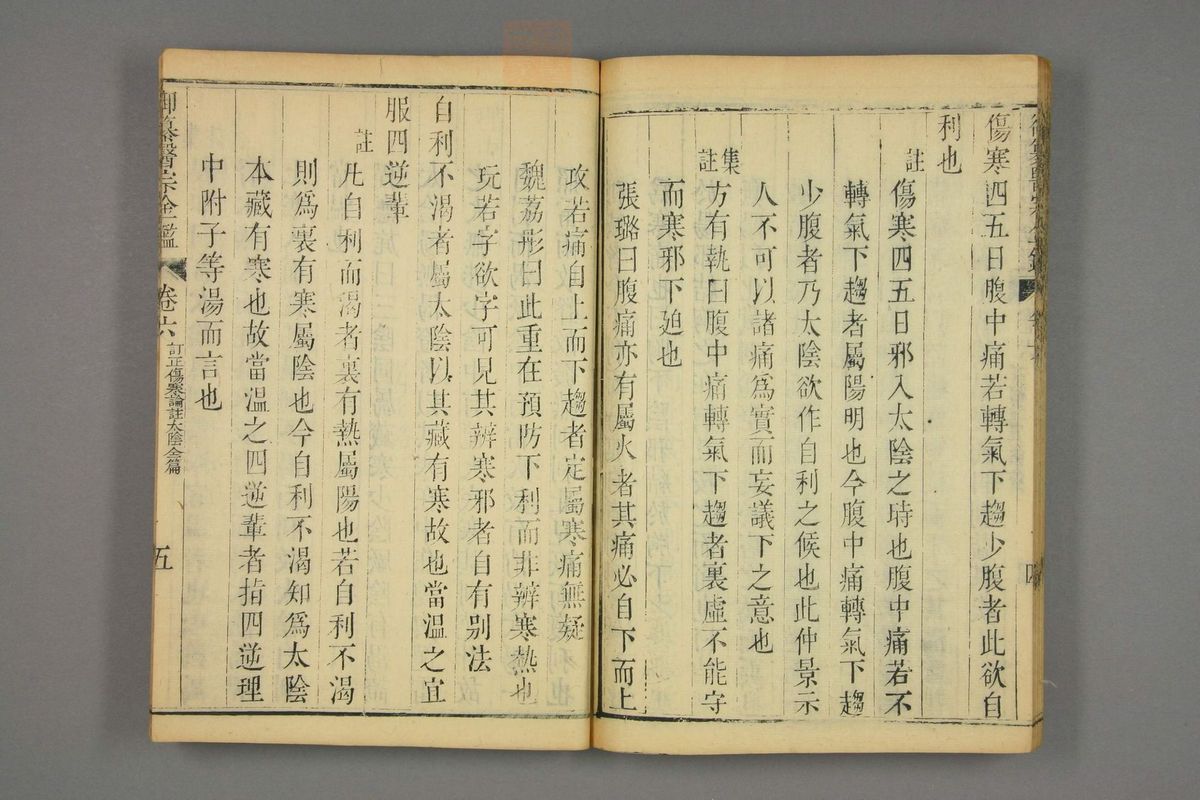 傷寒四五日腹中痛若轉氣下趨少腹者此欲自
利也
註 傷寒四五日邪入太陰之時也腹中痛若不
轉氣下趨者屬陽明也今腹中痛轉氣下趨
少腹者乃太陰欲作自利之候也此仲景示
人不可以諸痛為實而妄議下之意也
集註 方有執曰腹中痛轉氣下趨者裏虛不能守
而寒邪下廹也
張璐曰腹痛亦有屬火者其痛必自下而上
攻若痛自上而下趨者定屬寒痛無疑
魏荔彤曰此重在預防下利而非辨寒熱也
玩若字欲字可見其辨寒邪者自有别法
自利不渴者屬太陰以其藏有寒故也當溫之宜
服四逆輩
註 凡自利而渴者裏有熱屬陽也若自利不渴
則爲裏有寒屬陰也今自利不渴知爲太陰
本藏有寒也故當溫之四逆輩者指四逆理
中附子等湯而言也
御纂醫宗金鑑 卷六 訂正傷寒論註太陰全篇 五